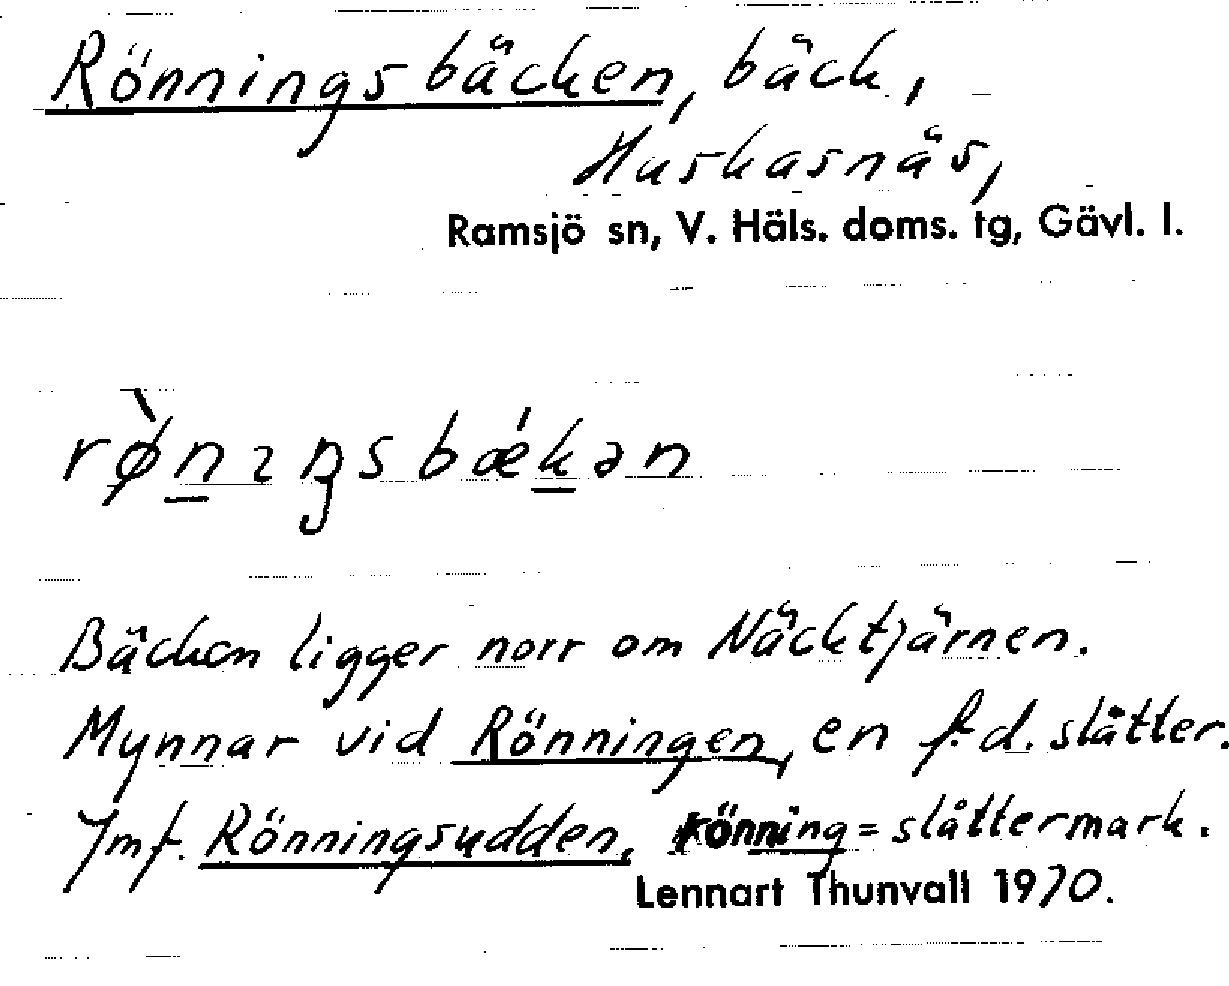 Rönningsbäcken, bäck,
Huskasnäs,
Ramsjö sn, V. Häls. doms. tg, Gävl. l.
rø̀nıŋsbǽkən
Bäcken ligger norr om Näcktjärnen.
Mynnar vid Rönningen, en f.d. slåtter.
Jmf. Rönningsudden, rönning = slåttermark.
Lennart Thunvall 1970.